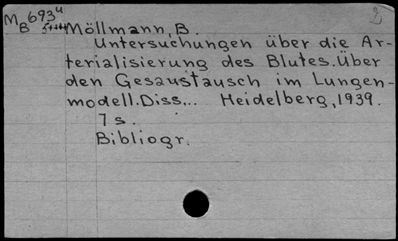 M693u
B Möllmann, B.
Untersuchungen über die Ar-
terialisierung des Blutes. Über
den Gesaustausch im Lungen-
modell. Diss... Heidelberg, 1939.
7 s.
Bibliogr.